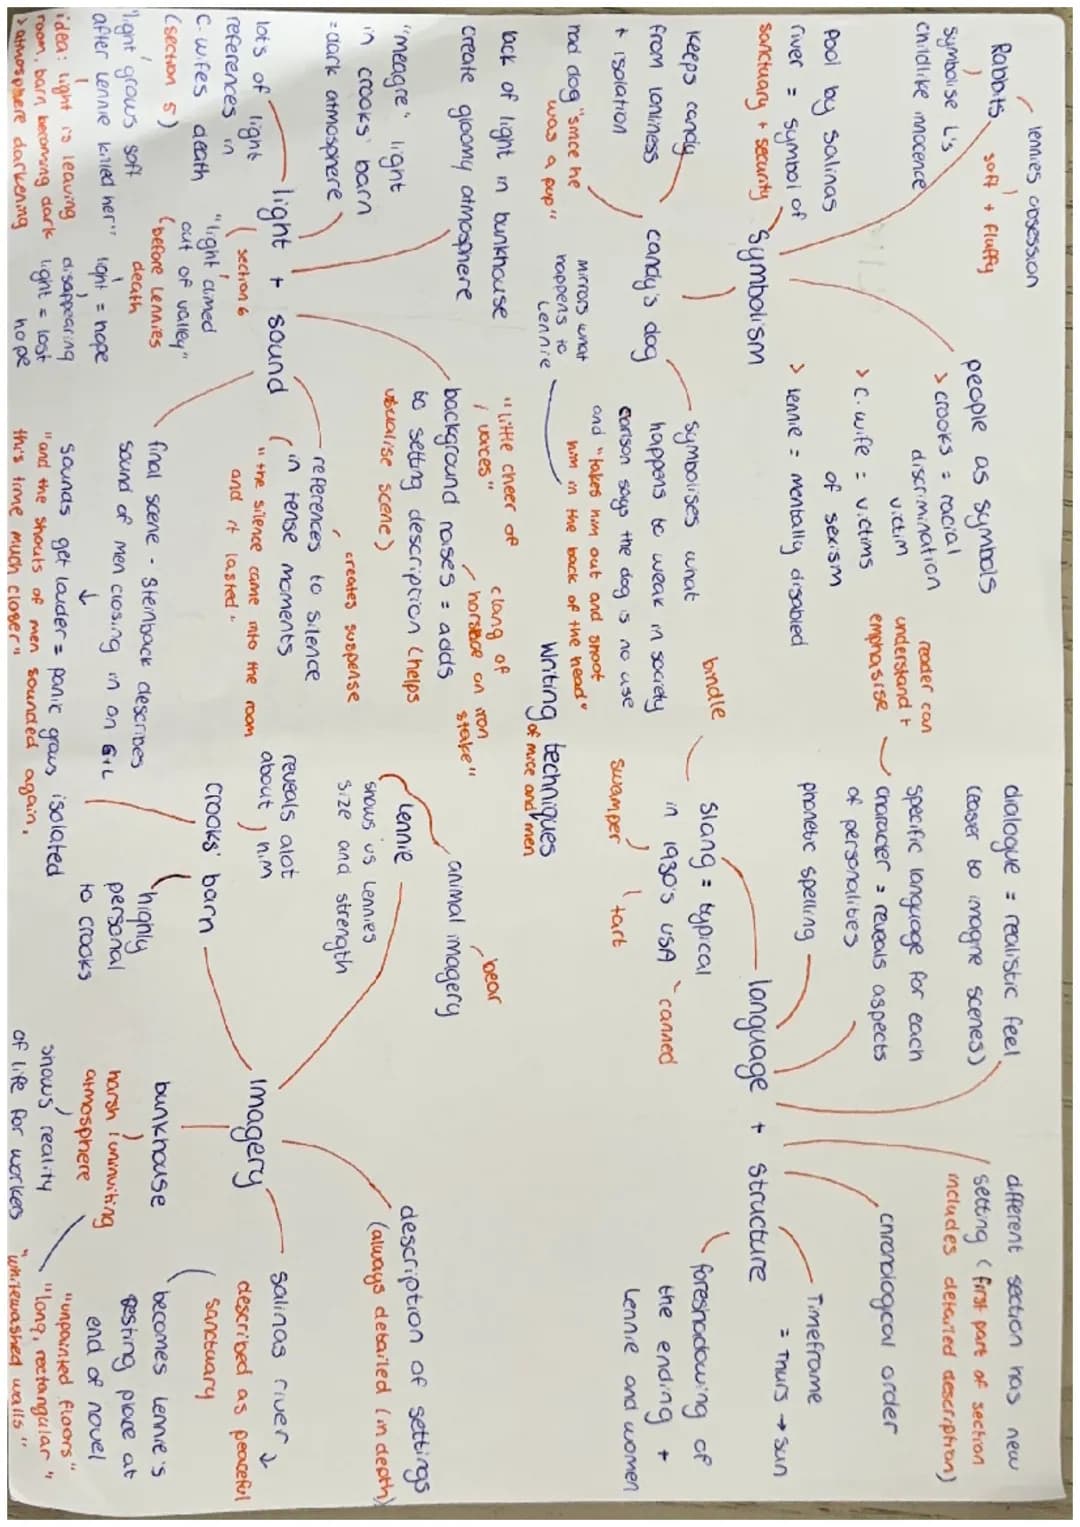 Writing techniques
of mice and men
Symbolism
Rabbits
lennies obsession
soft + fluffy
symbolise L's
childlike innocence
Pool by Salinas
river = symbol of
sanctuary + security
people as symbols
> crooks = racial
discrimination
victim
> c. wife = victims
of sexism
> lennie = mentally disabled
candy's dog
keeps candy
from lonliness
+ isolation
had dog "since he
was a pup"
mirrors what
happens to
Lennie
symbolises what
happens to weak in society
carlson says the dog is no use
and "takes him out and shoot
him in the back of the head"
language + structure
dialogue = realistic feel
(easier to imagine scenes)
specific language for each
character = reveals aspects
of personalities
reader can
understand +
emphasise
phonetic spelling
slang = typical
in 1930's USA
bindle
swamper
tart
canned
different section has new
setting (first part of section
includes detailed description)
chronological order
Timeframe
= Thurs → Sun
foreshadowing of
the ending +
Lennie and women
light + sound
lack of light in bunkhouse
create gloomy atmosphere
"meagre" light
in crooks' barn
= dark atmosphere
lots of light
references in
c. wifes death
(section 5)
"light grows soft
after Lennie killed her"
idea: light is leaving
room, barn becoming dark
> atmosphere darkening
section 6
"light climed
out of valley"
(before Lennies
death
light = hope
disappearing
light = lost
hope
background noises = adds
to setting description (helps
visualise scene)
"little cheer of
voices"
clang of
horshoe on iron
stake"
references to silence
in tense moments
creates suspense
"the silence came into the room
and it lasted"
final scene - Steinback describes
sound of men closing in on G+L
↓
sounds get louder = panic grows
"and the shouts of men sounded again,
this time much closer"
Imagery
animal imagery
bear
Lennie
shows us Lennies
size and strength
crooks' barn
reveals alot
about him
isolated
highly
personal
to crooks
bunkhouse
harsh / uninviting
atmosphere
shows reality
of life for workers
"unpainted floors"
"long, rectangular"
"whitewashed walls"
description of settings
(always detailed (in depth)
salinas river ↓
described as peaceful
sanctuary
becomes Lennie's
resting place at
end of novel